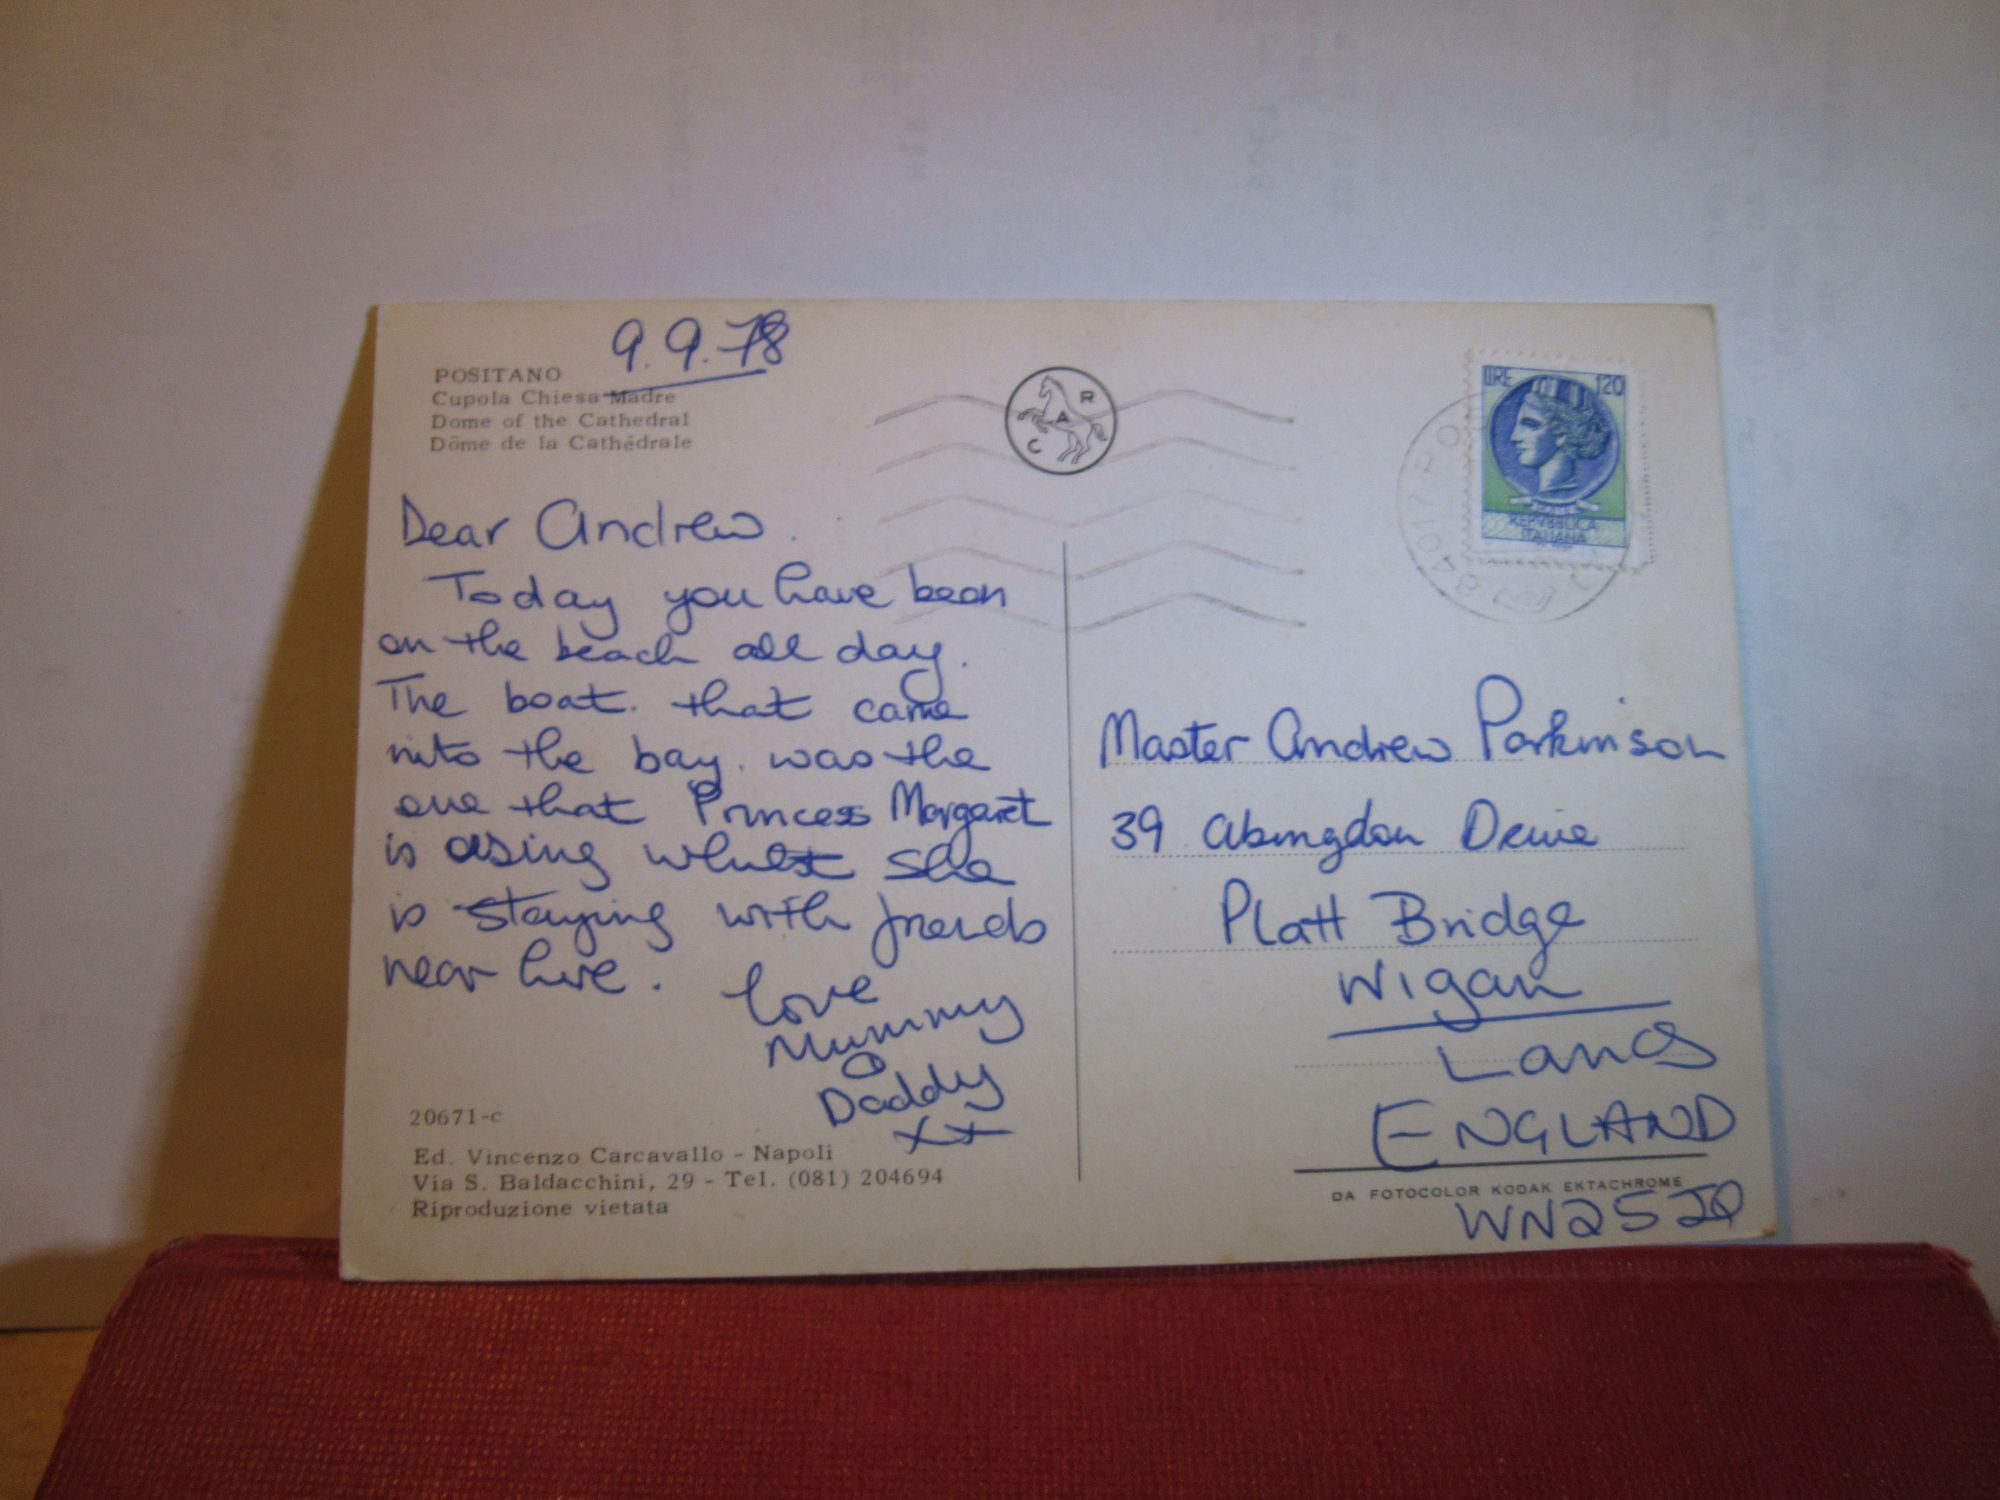 9.9.78
POSITANO
Cupola Chiesa Madre
Dome of the Cathedral
Dôme de la Cathédrale
Dear Andrew.
Today you have been
on the beach all day.
The boat. that came
into the bay. was the
one that Princess Margaret
is using whilst she
is staying with friends
near here.
love
Mummy
&
Daddy
xx
20671-c
Ed. Vincenzo Carcavallo - Napoli
Via S. Baldacchini, 29 - Tel. (081) 204694
Riproduzione vietata
C A R
LIRE 120
REPVBBLICA
ITALIANA
84017 PO
Master Andrew Parkinson
39 Abingdon Drive
Platt Bridge
Wigan
Lancs
ENGLAND
DA FOTOCOLOR KODAK EKTACHROME
WN2 5JQ